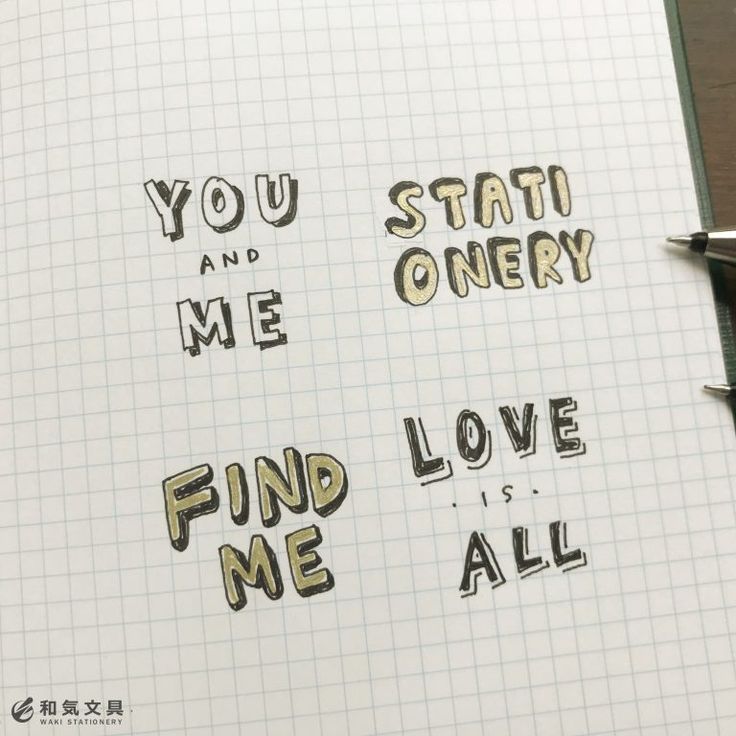 YOU
AND
ME
STATI
ONERY
FIND
ME
LOVE
·IS·
ALL
和気文具
WAKI STATIONERY